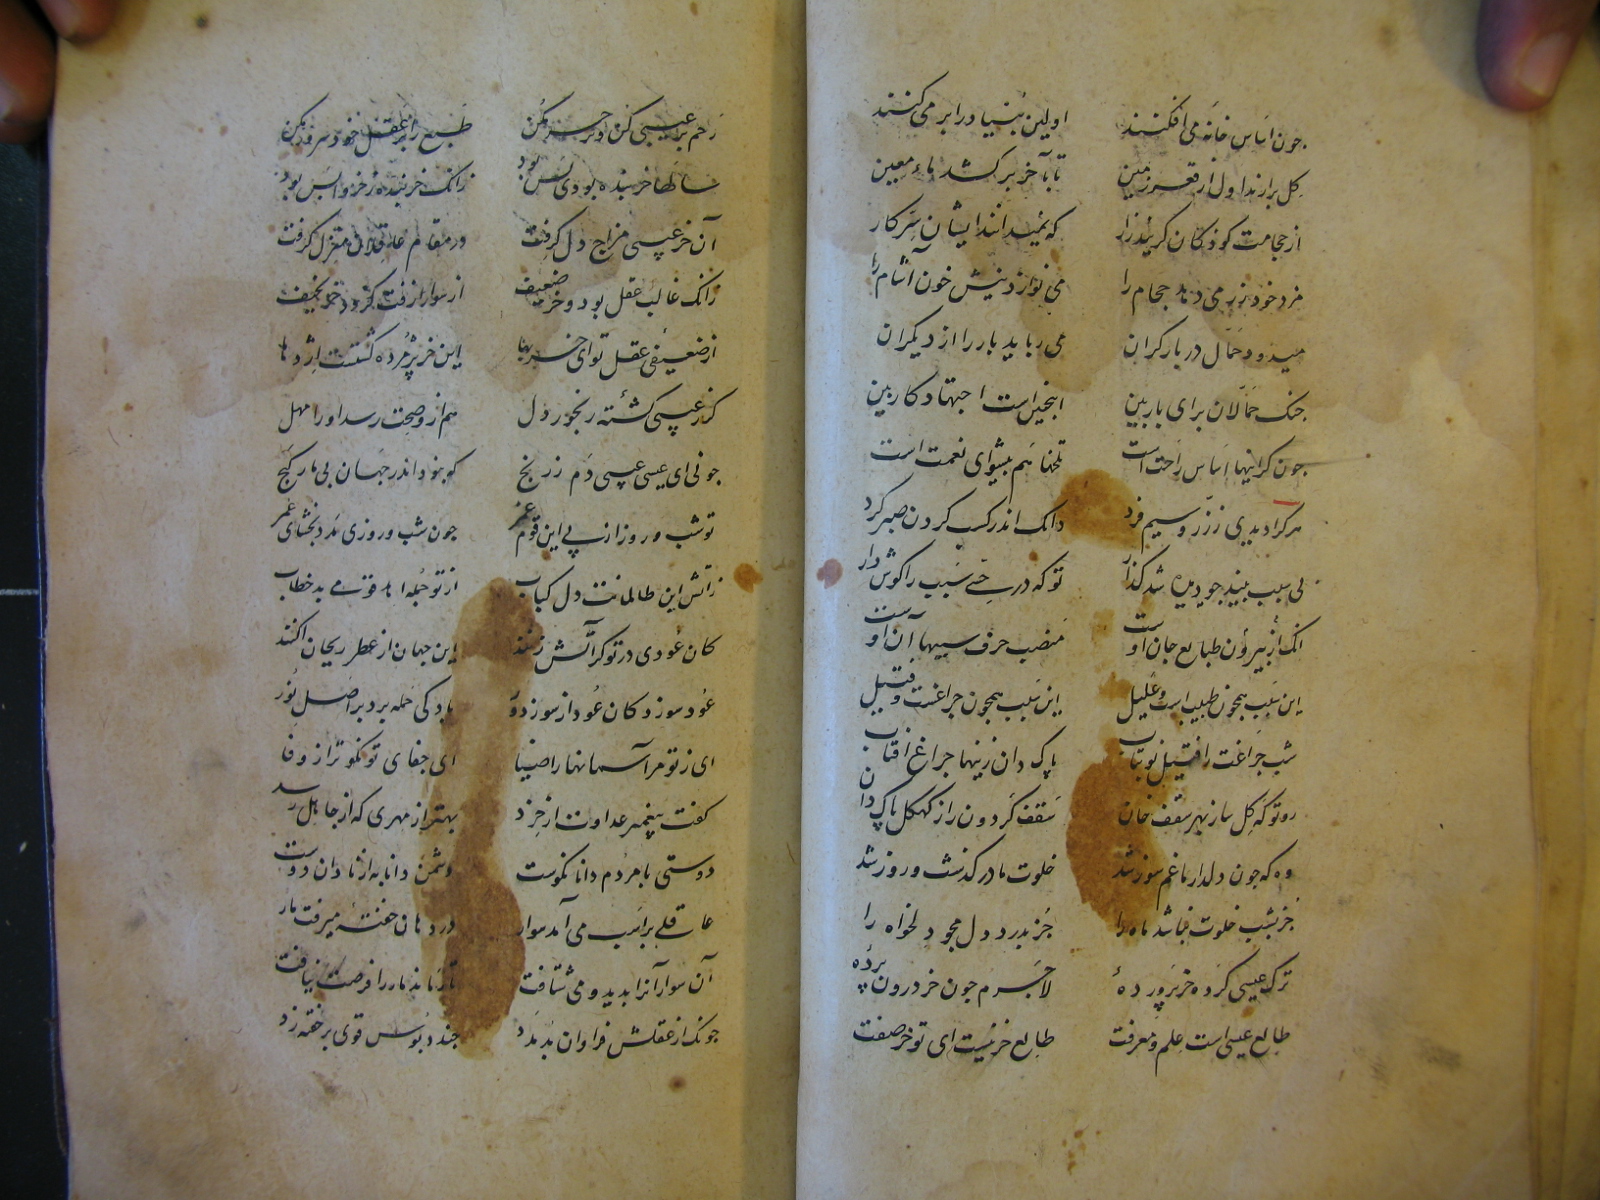 چون اساس خانهٔ می افکنند اولین بنیاد را بر می کنند
کل برارند اول از قعر زمین تا بآخر برکشد ماء معین
از حجامت کودکان کریند زار که نمیدانند ایشان سر کار
مرد خود زر می دهد حجام را می نوازد نیش خون آشام را
میدود حمال در بار کران می رباید بار را از دیکران
جنک حمالان برای بار بین اینچنین است اجتهاد کار بین
جون کرانیها اساس راحت است تلخها هم پیشوای نعمت است
هر کرا دیدی ز زر و سیم فرد دانک اندر کسب کردن صبر کرد
بی سبب بیند جو دیده شد کذار تو که در حسی سبب را کوش دار
انک از بیرون طبایع جان اوست منصب خرق سببها آن اوست
این سبب همچون طبیب است و علیل این سبب همچون چراغست و فتیل
شب چراغت را فتیل نو بتاب پاک دان زینها چراغ افتاب
رو تو کهکل ساز بهر سقف خان سقف کردون را ز کهکل پاک دان
وه که جون دلدار ما غم سوز شد خلوت ما در کذشت و روز شد
جز بشب خلوت نباشد ماه را جز بدرد دل مجو دلخواه را
ترک عیسی کرده خر پرورده لاجرم جون خر درون پرده
طالع عیسی است علم و معرفت طالع خر نیست ای تو خر صفت
رحم بر عیسی کن و بر خر مکن طبع را بر عقل خود سرور مکن
سالها خر بنده بودی بس بود زانک خر بنده ز خر واپس بود
آن خر عیسی مزاج دل کرفت در مقام عاقلان منزل کرفت
زانک غالب عقل بود و خر ضعیف از سوار زفت کردد خر نحیف
از ضعیفی عقل تو ای خر بها این خر پژمرده کشتست اژدها
کر ز عیسی کشتهٔ رنجور دل هم ازو صحت رسد او را مهل
چونی ای عیسی عیسی دم ز رنج کو نبود اندر جهان بی مار کنج
تو شب و روز از پی این قوم غمر جون شب و روزی مدد بخشای عمر
ز آتش این ظالمانت دل کباب از تو جمله اهد قومی بد خطاب
کان عودی در تو کر آتش زنند این جهان از عطر ریحان اکنند
عود سوزد کان عود از سوز دور باد کی حمله برد بر اصل نور
ای ز تو مر آسمانها را صفا ای جفای تو نکوتر از وفا
کفت پیغمبر عداوت از خرد بهتر از مهری که از جاهل رسد
دوستی با مردم دانا نکوست دشمن دانا به از نادان دوست
عاقلی بر اسب می آمد سوار در دهان خفتهٔ میرفت مار
آن سوار آنرا بدید و می شتافت تا رماند مار را فرصت نیافت
جونک از عقلش فراوان بد مدد جند دبوس قوی بر خفته زد